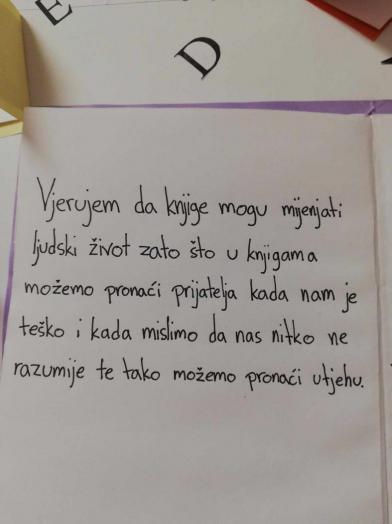 E
D
Vjerujem da knjige mogu mijenjati
ljudski život zato što u knjigama
možemo pronaći prijatelja kada nam je
teško i kada mislimo da nas nitko ne
razumije te tako možemo pronaći utjehu.